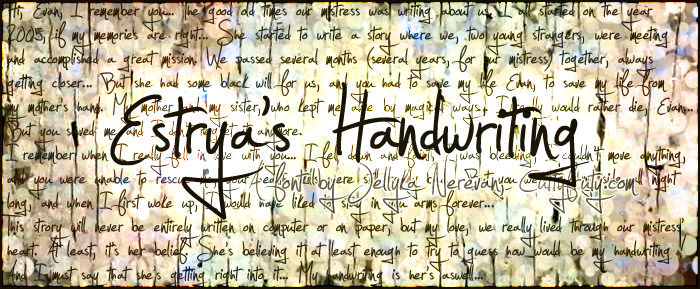 Hi, Evan, I remember you... The good old times our mistress was writing about us. It all started on the year
2005, if my memories are right... She started to write a story where we, two young strangers, were meeting
and accomplished a great mission. We passed several months (several years, for our mistress) together, always
getting closer... But she had some black will for us, and you had to save my life Evan, to save my life from
my mother's hand. My mother and my sister, who kept me by magical ways... I would rather die, Evan...
But you saved me and I anymore.
Estrya's Handwriting
I remember when I really fell in love with you... I fell down and was bleeding couldn't move anything,
and you were unable to rescue night
Font by Jellyka Nerevan
long, and when I first woke up, I would have liked to stay in your arms forever...
This story will never be entirely written on computer or on paper, but my love, we really lived through our mistress'
heart. At least, it's her belief. She's believing it at least enough to try to guess how would be my handwriting
And I must say that she's getting right into it... My handwriting is her's aswell...